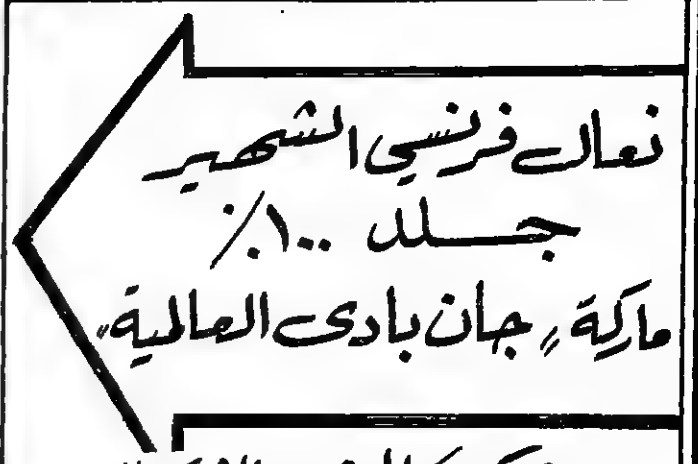 نعال فرنسي الشهير
جلد ١٠٠٪
ماركة "جان بادى العالمية"